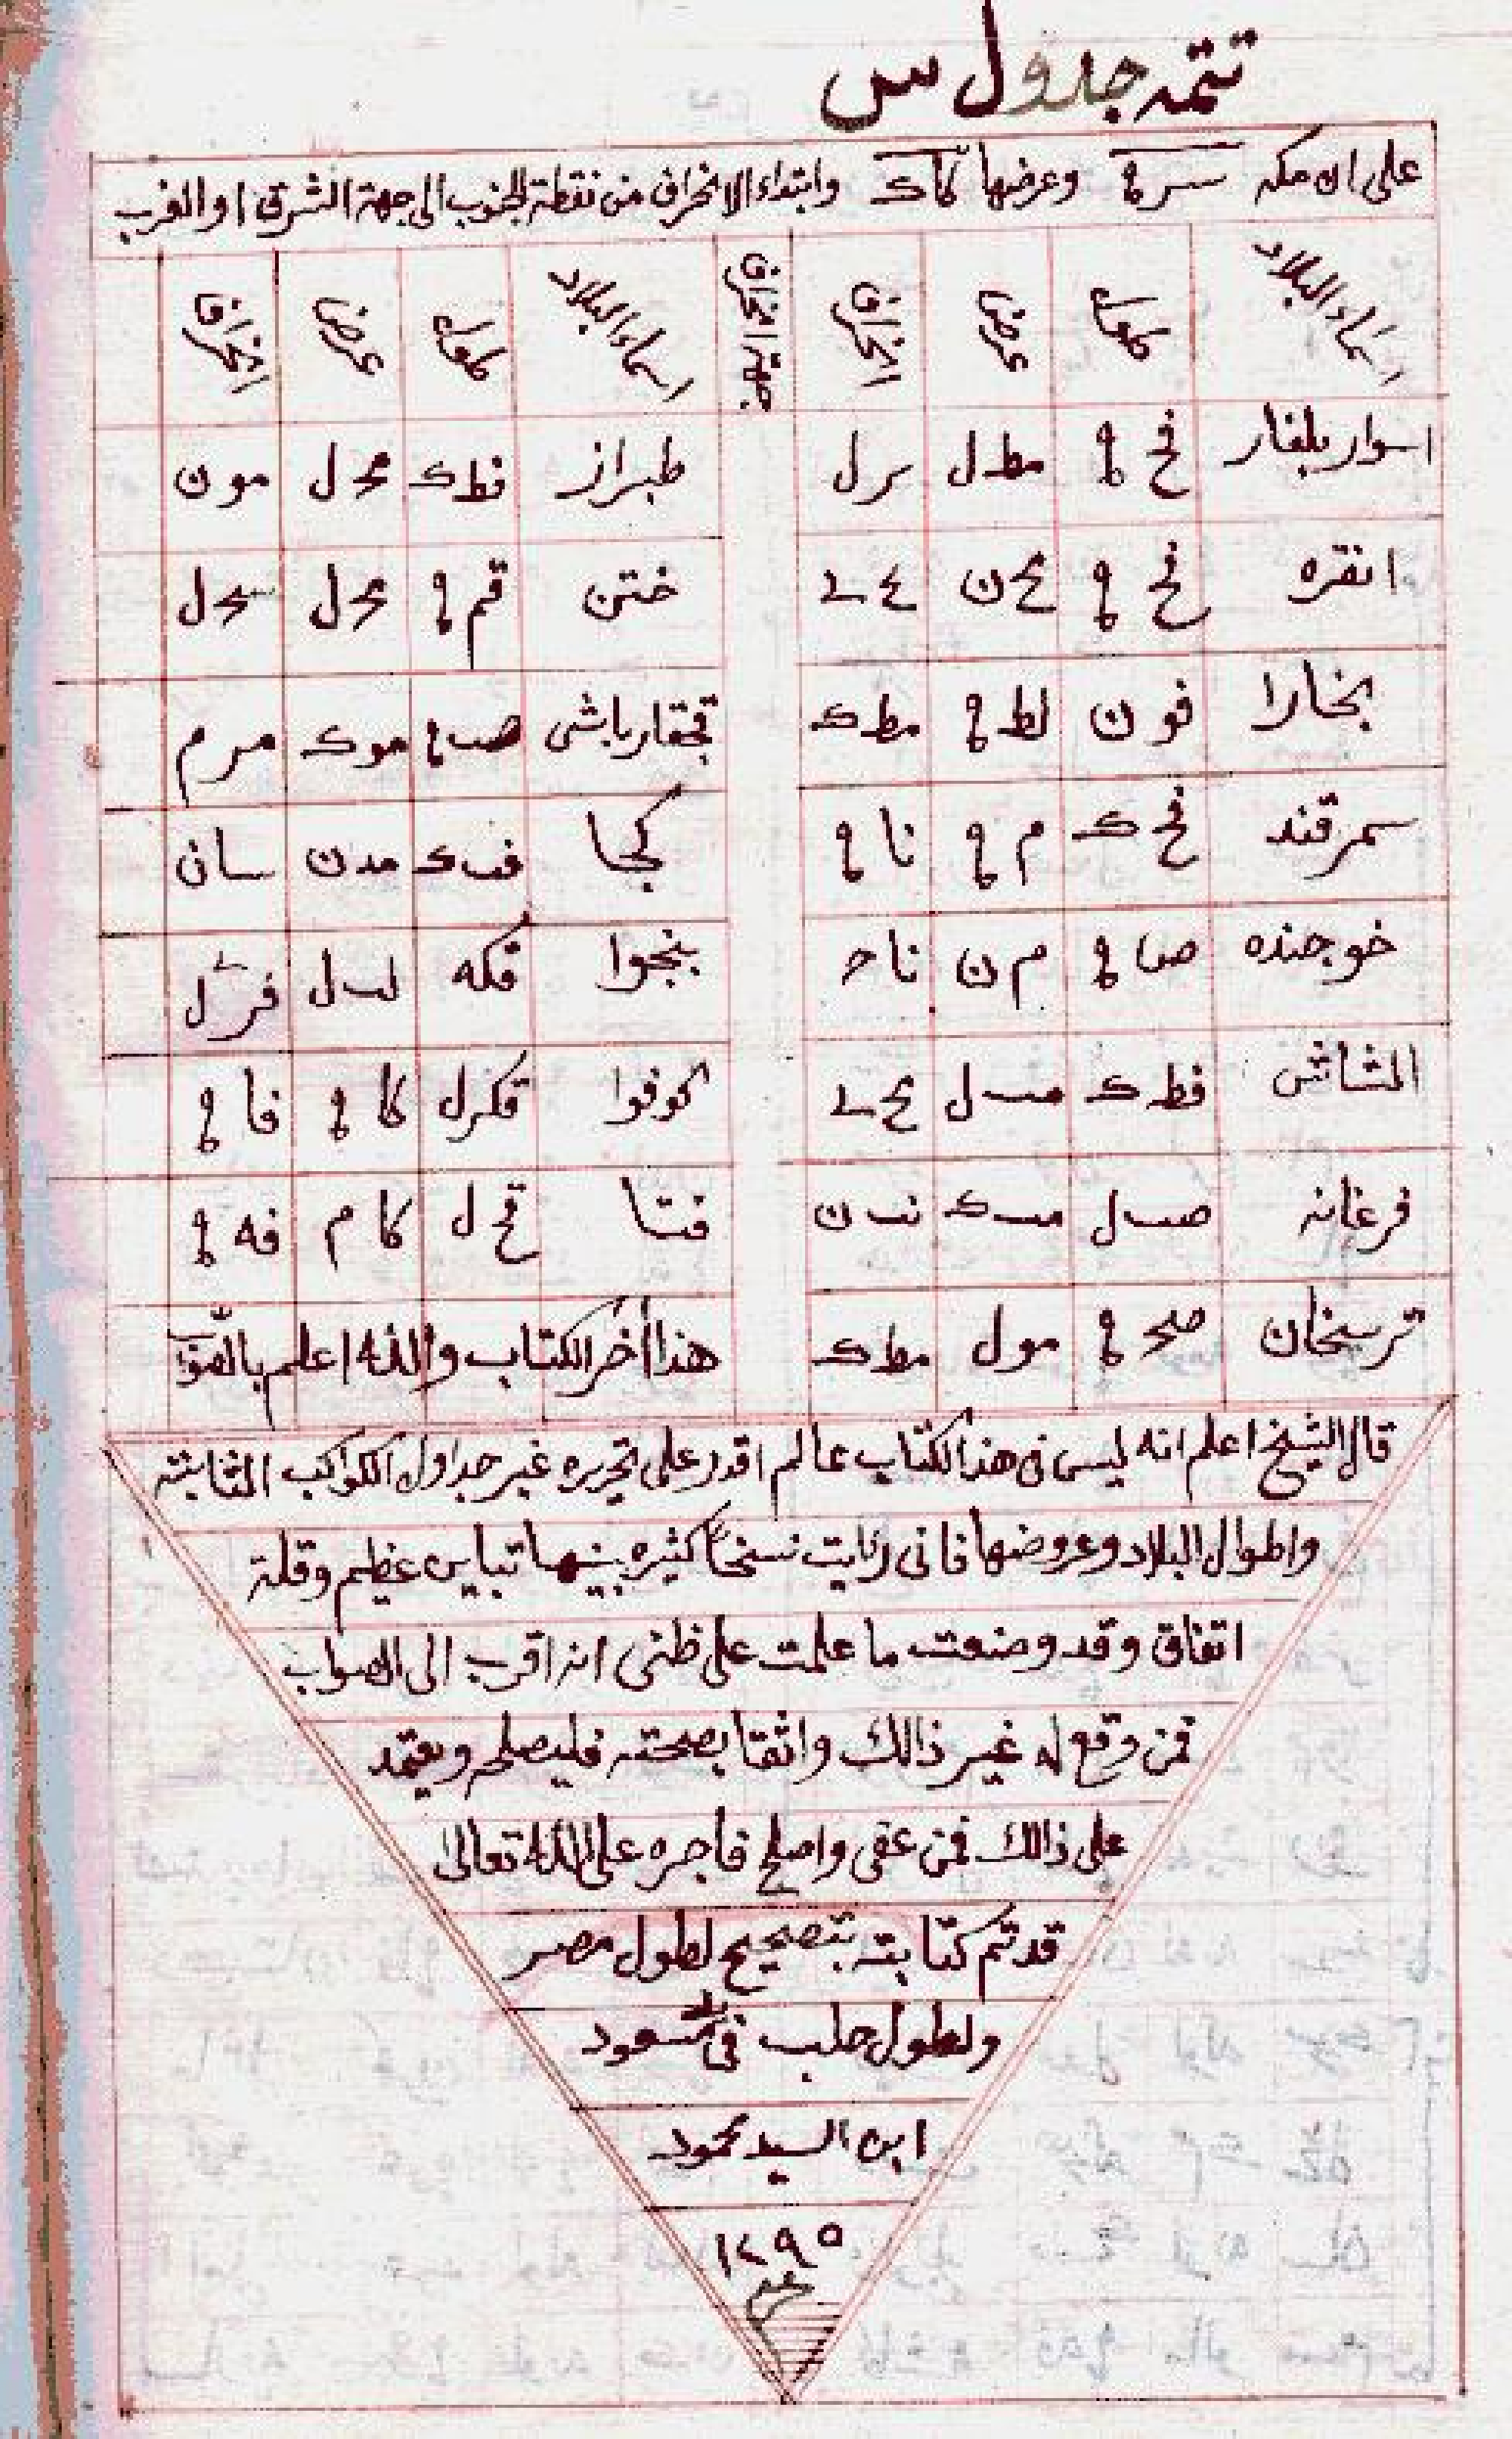 تتمه جدول س
على ان مكه سر ه وعرضها كا ك وابتداء الانحراف من نقطة الجنوب الى جهة الشرق او الغرب
اسماء البلاد طول عرض انحراف جهة انحراف اسماء البلاد طول عرض انحراف
اسوار بلغار فح ه مط ل ىر ل طبراز فط ك مح ل مو ن
انقره فح ه مح ن ختن قم ه مح ل سح ل
بخارا فو ن لط ه مط ك قجقارباشى صب ه مو ك مر م
سمرقند فح ك م ه نا ه كجا فب ك مد ن سا ن
خوجنده صا ه م ن نا ح بنجوا قكه لب ل فر ل
الشاش فط ك مب ل كوفوا قكر ل كا ه فا ه
فرغانه صب ل مب ك نب ن فتا قح ل كا م فه ه
ترسخان صح ه مو ل مط ك هذا أخر الكتاب والله اعلم بالصوا
قال الشيخ اعلم انه ليس فى هذا الكتاب عالم اقدر على تحريره غير جداول الكواكب الثابتة
واطوال البلاد وعروضها فانى رايت نسخاً كثيره بينها تباين عظيم وقلة
اتفاق وقد وضعت ما علمت على ظنى انه اقرب الى الصواب
فمن وقع له غير ذالك واثقا بصحته فليصلح ويعتمد
على ذالك فمن عفى واصلح فاجره على الله تعالى
قد تم كتابته بتصحيح لطول مصر
ولطول حلب فى مسعود
ابن السيد محمود
١٢٩٥